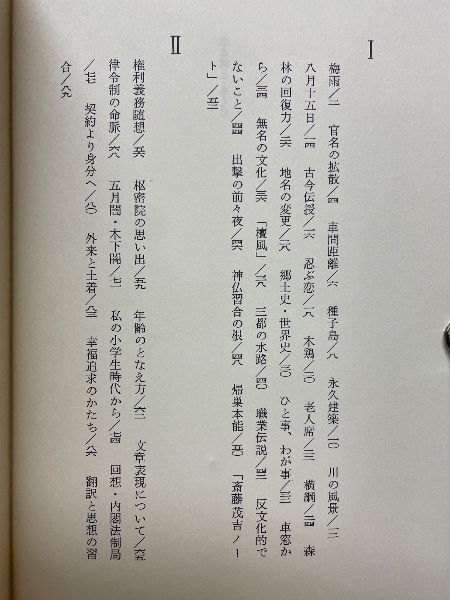 Ⅰ
梅雨/二 官名の拡散/四 車間距離/六 種子島/八 永久建築/一〇 川の風景/一二
八月十五日/一四 古今伝授/一六 忍ぶ恋/一八 木鶏/二〇 老人席/二二 横綱/二四 森
林の回復力/二六 地名の変更/二八 郷土史・世界史/三〇 ひと事、わが事/三二 車窓か
ら/三四 無名の文化/三六 「檀風」/三八 三都の水路/四〇 職業伝説/四二 反文化的で
ないこと/四四 出撃の前々夜/四六 神仏習合の/四八 帰巣本能/五〇 「斎藤茂吉ノー
ト」/五二
Ⅱ
権利義務随想/五六 枢密院の思い出/五九 年齢のとなえ方/六二 文章表現について/六五
律令制の命脈/六八 五月闇・木下闇/七一 私の小学生時代から/七四 回想・内閣法制局
/七七 契約より身分へ/八〇 外来と土着/八三 幸福追求のかたち/八六 翻訳と思想の習
合/八九